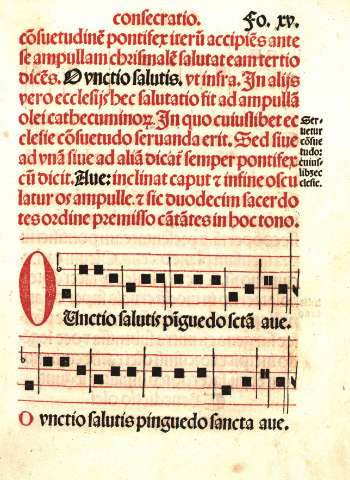 consecratio.
Fo. xv.
cõsuetudinẽ pontifex iterũ accipiẽs ante
se ampullam chrismalẽ salutat eam tertio
dicẽs. O vnctio salutis. vt infra. In alijs
vero ecclesijs hec salutatio fit ad ampullã
olei cathecuminoꝝ. In quo cuiuslibet ec
clesie cõsuetudo seruanda erit. Sed siue
ad vnã siue ad aliã dicat semper pontifex
cũ dicit. Aue: inclinat caput ⁊ infine oscu
latur os ampulle. ⁊ sic duodecim sacerdo
tes ordine premisso cãtãtes in hoc tono.
Ser-
uetur
cõsue
tudo:
cuius-
libꝫ ec
clesie.
O Vnctio salutis pĩguedo sctã aue.
O vnctio salutis pinguedo sancta aue.